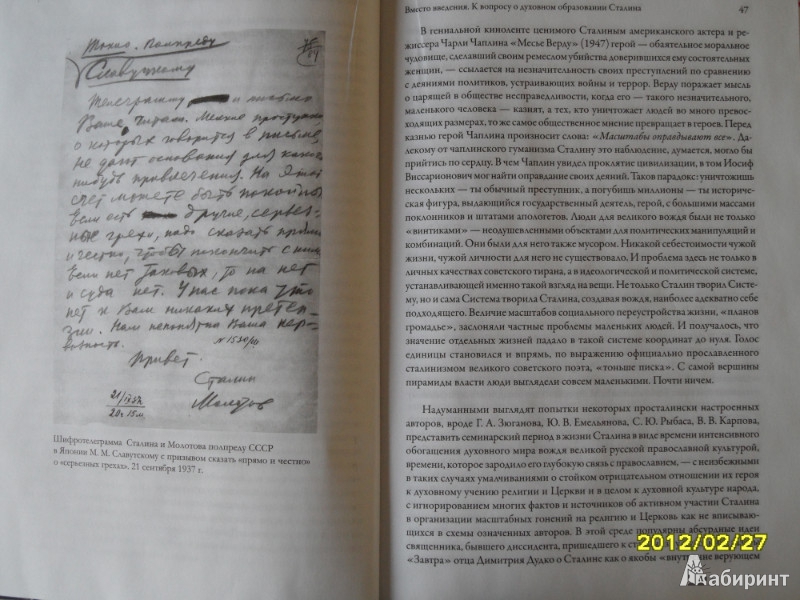 Токио. Полпреду
Славуцкому
Телеграмму и письмо
Ваше читали. Мелкие проступки,
о которых говорится в письме,
не дают основания для какого
нибудь привлечения. На этот
счет можете быть покойны.
Если есть другие, серьез-
ные грехи, надо сказать прямо
и честно, чтобы покончить с ними
Если нет таковых, то на нет
и суда нет. У нас пока что
нет к Вам никаких претен-
зий. Нам непонятна Ваша нер-
возность.
Привет.
Сталин
Молотов
20 ч. 15 м.
Шифротелеграмма Сталина и Молотова полпреду СССР
в Японии М. М. Славутскому с призывом сказать «прямо и честно»
о «серьезных грехах». 21 сентября 1937 г.
Вместо введения. К вопросу о духовном образовании Сталина 47
В гениальной киноленте ценимого Сталиным американского актера и ре-
жиссера Чарли Чаплина «Месье Верду» (1947) герой — обаятельное моральное
чудовище, сделавший своим ремеслом убийства доверившихся ему состоятельных
женщин, — ссылается на незначительность своих преступлений по сравнению
с деяниями политиков, устраивающих войны и террор. Верду поражает мысль
о царящей в обществе несправедливости, когда его — такого незначительного,
маленького человека — казнят, а тех, кто уничтожает людей во много превос-
ходящих размерах, то же самое общественное мнение превращает в героев. Перед
казнью герой Чаплина произносит слова: «Масштабы оправдывают все». Да-
лекому от чаплинского гуманизма Сталину это наблюдение, думается, могло бы
прийтись по сердцу. В чем Чаплин увидел проклятие цивилизации, в том Иосиф
Виссарионович мог найти оправдание своих деяний. Таков парадокс: уничтожишь
нескольких — ты обычный преступник, а погубишь миллионы — ты историче-
ская фигура, выдающийся государственный деятель, герой, с большими массами
поклонников и штатами апологетов. Люди для великого вождя были не только
«винтиками» — неодушевленными объектами для политических манипуляций и
комбинаций. Они были для него также мусором. Никакой себестоимости чужой
жизни, чужой личности для него не существовало. И проблема здесь не только в
личных качествах советского тирана, а в идеологической и политической системе,
устанавливающей именно такой взгляд на вещи. Не только Сталин творил Систе-
му, но и сама Система творила Сталина, создавая вождя, наиболее адекватно себе
подходящего. Величие масштабов социального переустройства жизни, «планов
громадье», заслоняли частные проблемы маленьких людей. И получалось, что
значение отдельных жизней падало в такой системе координат до нуля. Голос
единицы становился и впрямь, по выражению официально прославленного
сталинизмом великого советского поэта, «тоньше писка». С самой вершины
пирамиды власти люди выглядели совсем маленькими. Почти ничем.
Надуманными выглядят попытки некоторых просталински настроенных
авторов, вроде Г. А. Зюганова, Ю. В. Емельянова, С. Ю. Рыбаса, В. В. Карпова,
представить семинарский период в жизни Сталина в виде времени интенсивного
обогащения духовного мира вождя великой русской православной культурой,
времени, которое зародило его глубокую связь с православием, — с неизбежными
в таких случаях умалчиваниями о стойком отрицательном отношении их героя
к духовному учению религии и Церкви и в целом к духовной культуре народа,
с игнорированием многих фактов и источников об активном участии Сталина
в организации масштабных гонений на религию и Церковь как не вписываю-
щихся в схемы означенных авторов. В этой среде популярны абсурдные идеи
священника, бывшего диссидента, пришедшего к
«Завтра» отца Димитрия Дудко о Сталине как о якобы «внутренне верующем
2012/02/27
Лабиринт